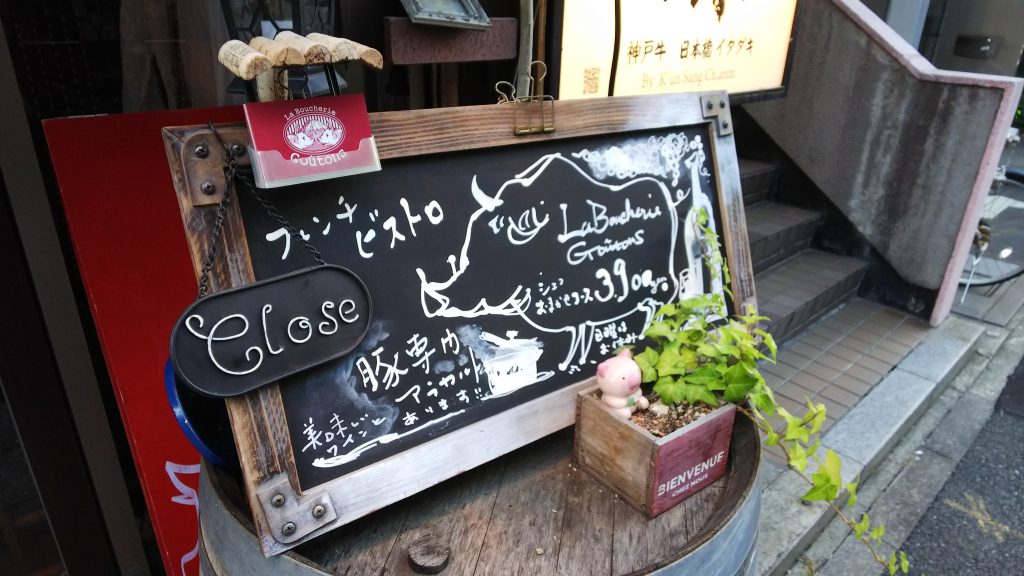 神戸牛 日本橋イタダキ
By K'un Sang Charin
La Boucherie
Goûtons
フレンチ
ビストロ
La Boucherie
Goûtons
シェフ
おまかせコース 3,900yen
日曜は
お休み
Close
豚専門
アラカルト
あります!!
美味しい
ワインと
BIENVENUE
CHEZ NOUS